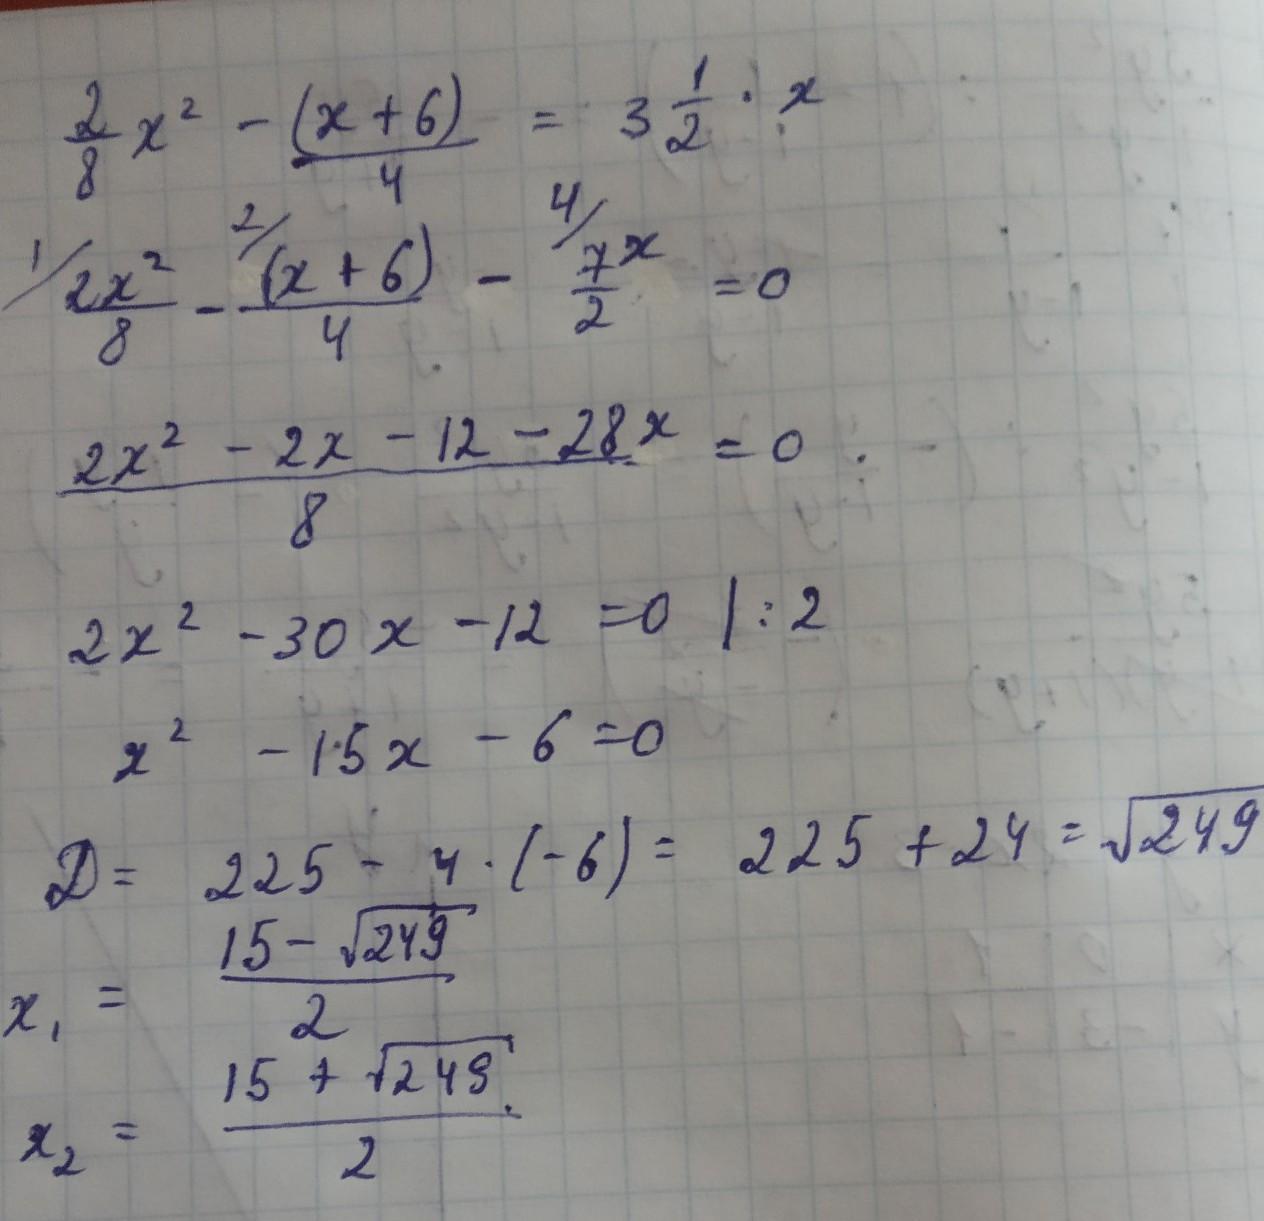 2/8 x² - (x + 6)/4 = 3 1/2 · x
1/ 2x²/8 - 2/ (x + 6)/4 - 4/ 7x/2 = 0
(2x² - 2x - 12 - 28x)/8 = 0
2x² - 30x - 12 = 0 | : 2
x² - 15x - 6 = 0
D = 225 - 4 · (-6) = 225 + 24 = √249
x₁ = (15 - √249)/2
x₂ = (15 + √249)/2